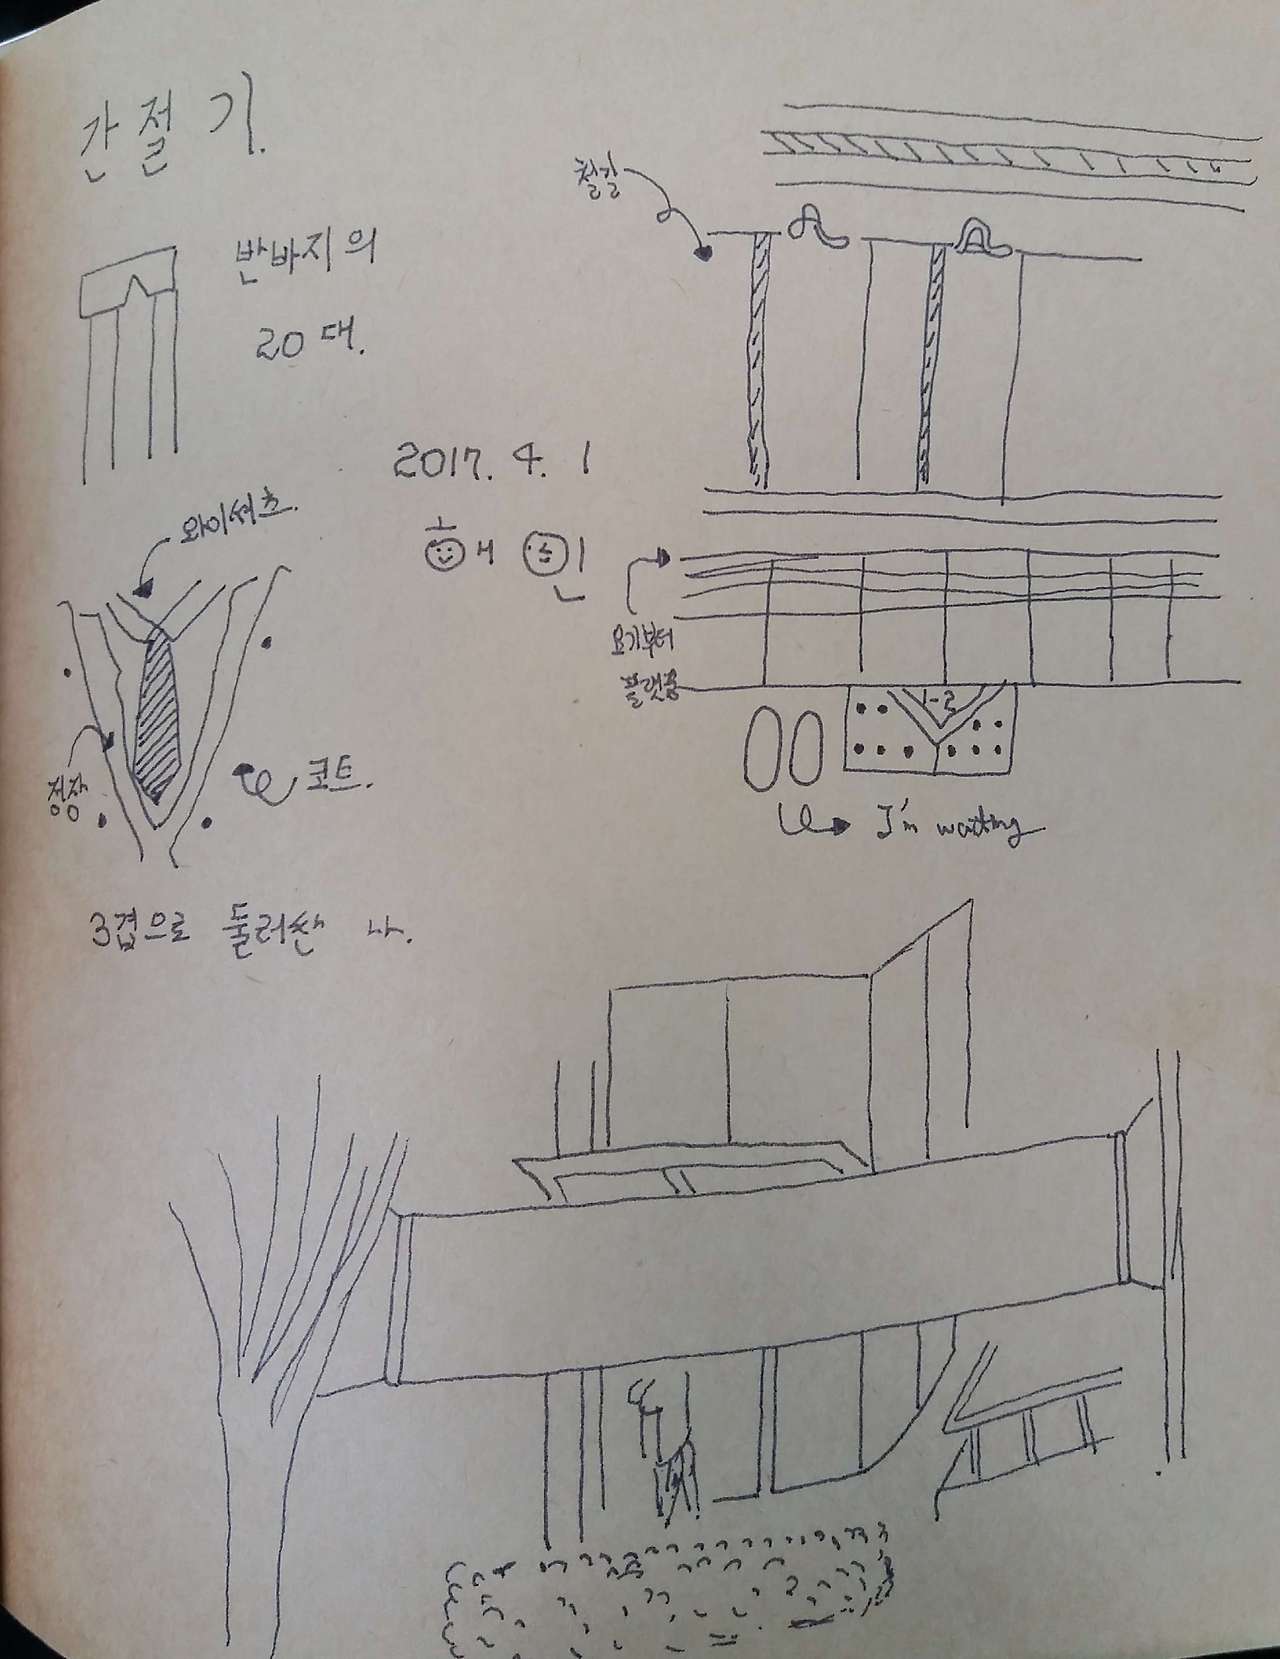 간절기.
반바지의
20대.
와이셔츠.
정장
코트.
3겹으로 둘러싼 나.
2017. 4. 1
철길
요기부터
플랫폼
1-2
I'm waiting